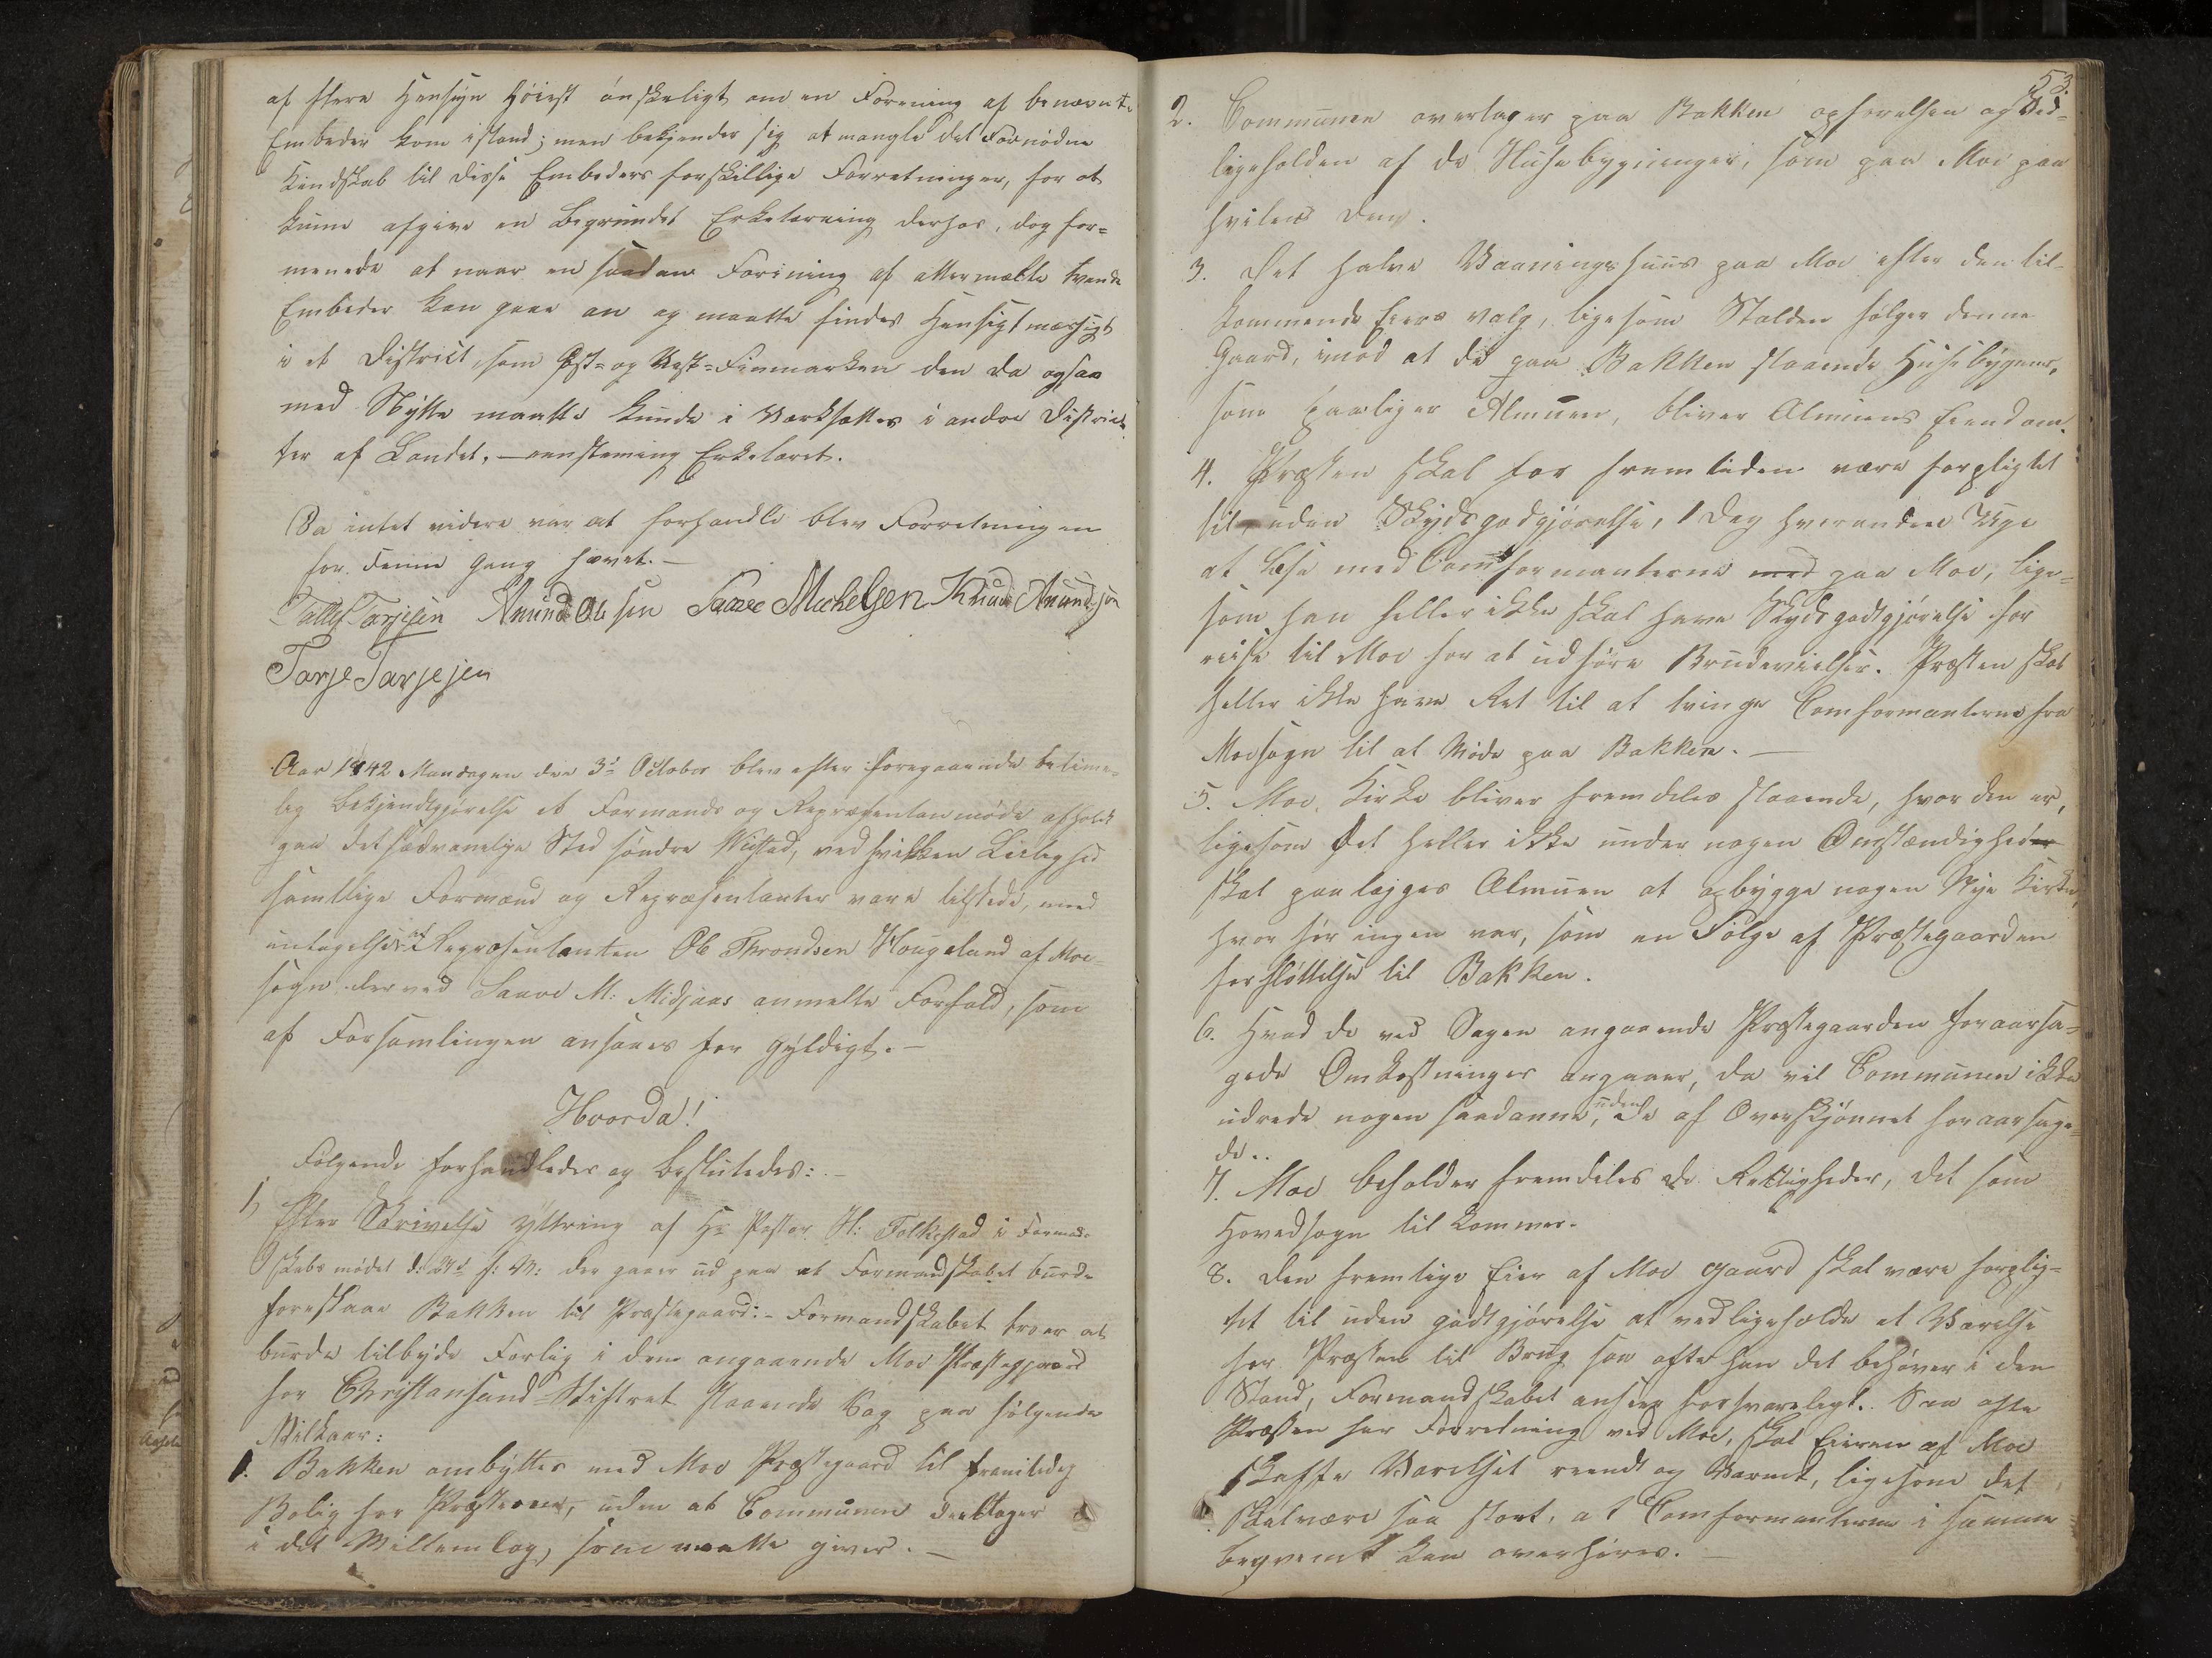 af flere Hensyn høiest ønskeligt om en Forening af benævnte
Embeder kom istand; men bekjender sig at mangle det Fornødne
Kundskab til disse Embeders forskillige Forretninger, for at
kunne afgive en Begrundet Erkelæring derhos, dog for-
menede at naar en saadan Forining af attermælte tvende
Embeder kan gaae an og maatte findes Hensigtmæsigt
i et District som Øst- og Vest-Finmarken den da ogsaa
med Nytte maatte kunde i Værksættes i andre Distric-
ter af Landet, - eenstemig Erkelæret.
Da intet videre var at forhandle blev Forretningen
for denne gang hævet. -
Tallef Tarjesen Amund Olsen Saave Mickelsen Knud Anundsen
Tarje Tarjesen
Aar 1842 Mandagen den 3d October blev efter foregaaende betime-
lig Bekjendtgjørelse et Formands og Repræsentanmøde afholdt
paa det sædvanelige Sted søndre Mustad, ved hvilken Leilighed
samtlige Formænd og Repræsentanter vare tilstede, med
untagelse af Repræsentanten Ole Throndsen Hougelund af Moe-
sogn derved Saave M: Midjaas anmelte Forfald, som
af Forsamlingen ansaaes for gyldigt. -
Hvorda!
Følgende forhandledes og Besluttedes: -
1, Efter Skrivelse yttring af Hr Pastor H: Folkestad i Formand-
skabs mødet d: 24d f: M: der gaaer ud paa at Formandskabet burde
foreslaae Bakken til Præstegaard: - Formandskabet troer at
burde tilbyde Forlig i den angaaende Moe Præstegaard
for Christansand Stiftret staaende Sag paa følgende
Vilkaar:
1. Bakken ombyttes med Moe Præstegaard til fremtidig
Bolig for Præsterne, uden at Communen deeltager
i det Mellemlag, som maatte gives. -
53.
2. Communen overtager paa Bakken opførelsen og Ved-
ligeholden af de Husebygninger, som paa Moe paa
hviler den.
3. Det halve Vaaningshuus paa Moe efter den til-
kommende Eiers valg, ligesom Stalden følger denne
Gaard, imod at de paa Bakken staaende Husebygninger,
som paaliger Almuen, bliver Almuens Eiendom.
4. Præsten skal for fremtiden være forpligtet
til uden Skydsgodgjørelse, 1 Dag hverandre Uge
at Læse med Comformanterne med paa Moe, lige-
som han heller ikke skal have Skydsgodtgjørelse for
reise til Moe for at udføre Brudevielser. Præsten skal
heller ikke have Ret til at tvinge Comformanterne fra
Moesogn til at Møde paa Bakken. -
5. Moe Kirke bliver fremdeles staaende, hvor den er,
ligesom det heller ikke under nogen Omstændigheder
skal paalegges Almuen at opbygge nogen Nye Kirke,
hvor før ingen var, som en Følge af Præstegaarden
forfløttelse til Bakken.
6. Hvad de ved Sagen angaaende Præstegaarden foraarsa-
gede Omkostninger angaaer, da vil Communen ikke
udrede nogen saadanne, uden de af Overskjønnet foraarsage-
de..
7. Moe beholder fremdeles de Rettigheder, det som
Hovedsogn til kommer.
8. Den fremtige Eier af Moe gaard skal være forplig-
tet til uden godtgjørelse at vedligeholde et Værelse
for Præsten til Brug saa ofte han det behøver i den
Stand, Formandskabet anseer forsvareligt. Saa ofte
Præsten har Forretning ved Moe, skal Eieren af Moe
skaffe Værelset reendt og Varmt, ligesom det
skal være saa stort, at Comformanterne i samme
beqvemt kan overhøres. -